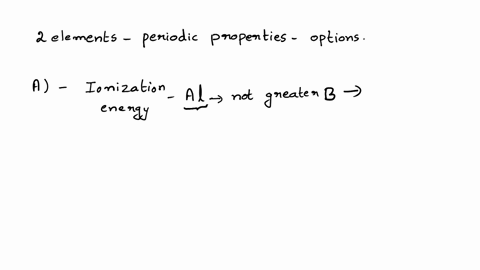 2 elements - periodic properties - options.
A) - Ionization energy - Al → not greater B →